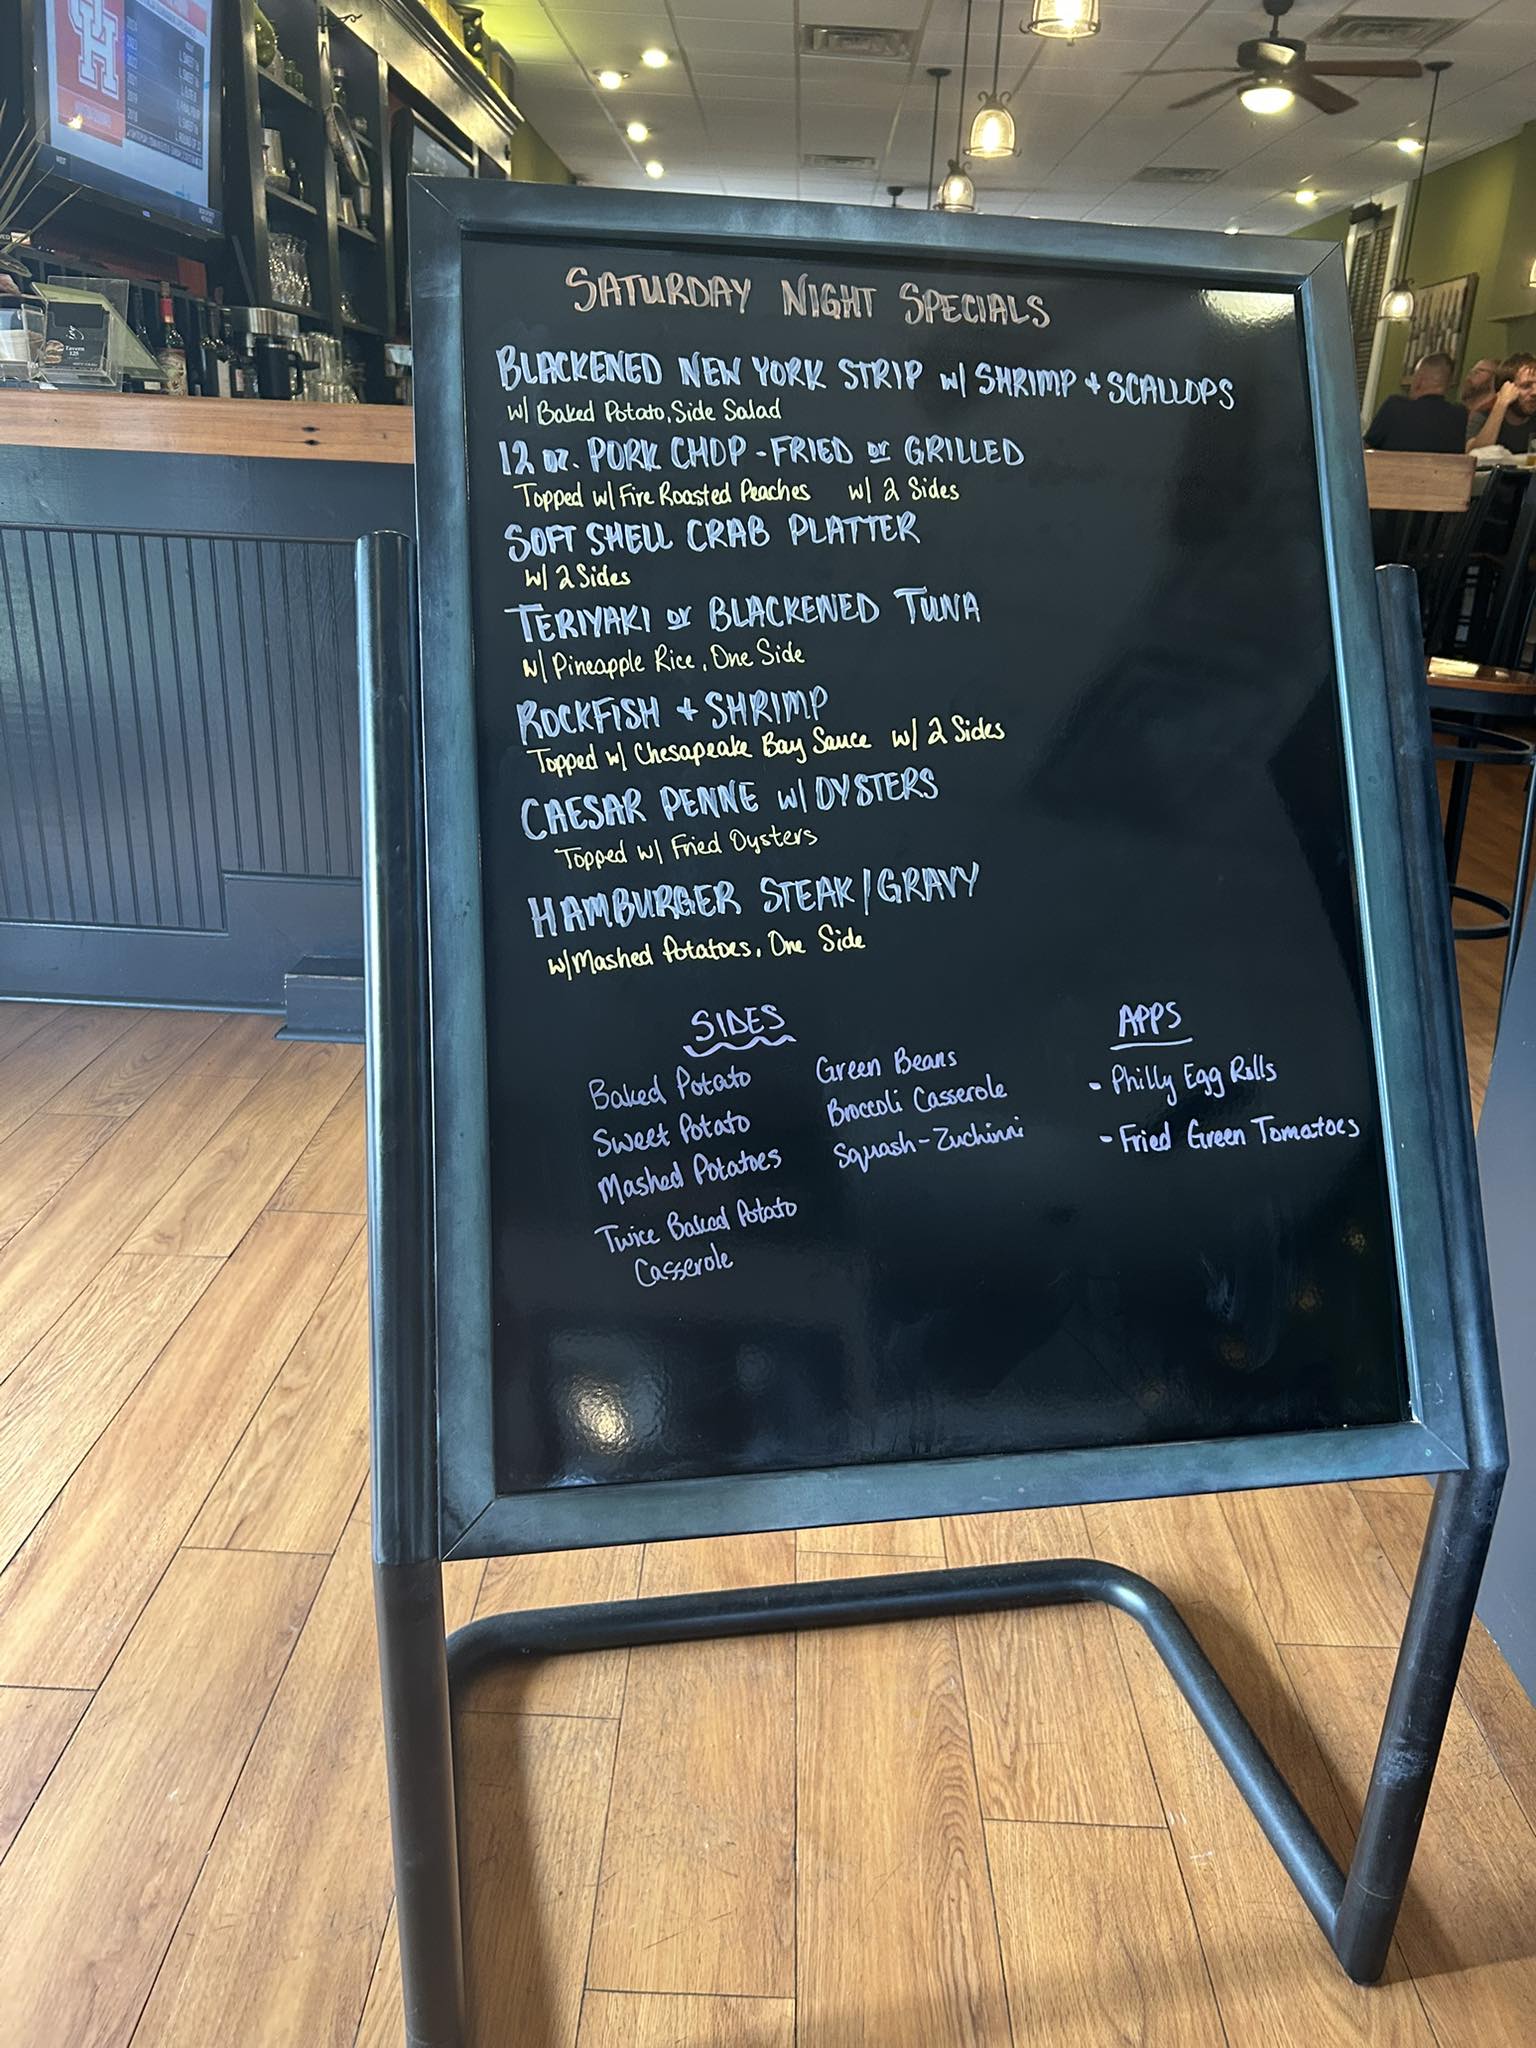 SATURDAY NIGHT SPECIALS
BLACKENED NEW YORK STRIP w/ SHRIMP + SCALLOPS
w/ Baked Potato, Side Salad
12 oz. PORK CHOP - FRIED or GRILLED
Topped w/ Fire Roasted Peaches w/ 2 Sides
SOFT SHELL CRAB PLATTER
w/ 2 Sides
TERIYAKI or BLACKENED TUNA
w/ Pineapple Rice, One Side
ROCKFISH + SHRIMP
Topped w/ Chesapeake Bay Sauce w/ 2 Sides
CAESAR PENNE w/ OYSTERS
Topped w/ Fried Oysters
HAMBURGER STEAK/GRAVY
w/ Mashed Potatoes, One Side
SIDES
Baked Potato
Sweet Potato
Mashed Potatoes
Twice Baked Potato
Casserole
Green Beans
Broccoli Casserole
Squash-Zuchinni
APPS
- Philly Egg Rolls
- Fried Green Tomatoes
UH
Tavern
125